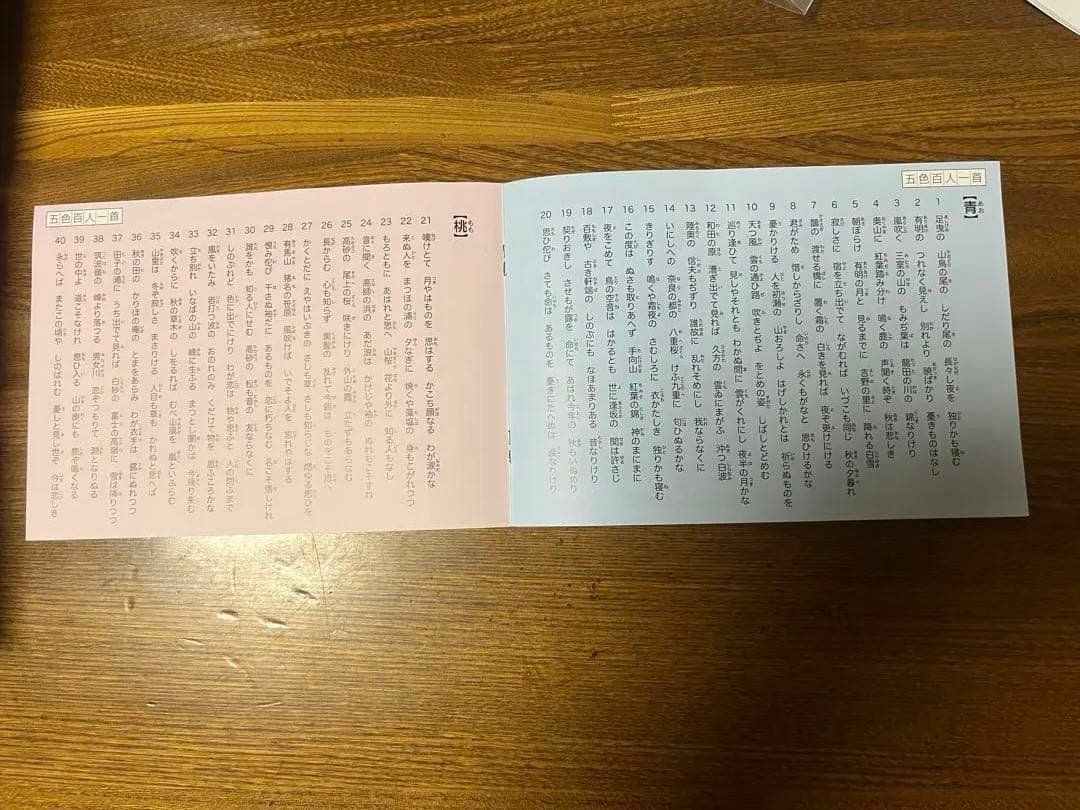 五色百人一首
【青】
1 足曳の 山鳥の尾の しだり尾の 長々し夜を 独りかも寝む
2 有明の つれなく見えし 別れより 暁ばかり 憂きものはなし
3 嵐吹く 三室の山の もみぢ葉は 龍田の川の 錦なりけり
4 奥山に 紅葉踏み分け 鳴く鹿の 声聞く時ぞ 秋は悲しき
5 朝ぼらけ 有明の月と 見るまでに 吉野の里に 降れる白雪
6 寂しさに 宿を立ち出でて ながむれば いづこも同じ 秋の夕暮れ
7 鵲の 渡せる橋に 置く霜の 白きを見れば 夜ぞ更けにける
8 君がため 惜しからざりし 命さへ 永くもがなと 思ひけるかな
9 憂かりける 人を初瀬の 山おろしよ はげしかれとは 祈らぬものを
10 天つ風 雲の通ひ路 吹きとぢよ をとめの姿 しばしとどめむ
11 巡り逢ひて 見しやそれとも わかぬ間に 雲がくれにし 夜半の月かな
12 和田の原 漕ぎ出でて見れば 久方の 雲ゐにまがふ 沖つ白波
13 陸奥の 信夫もぢずり 誰故に 乱れそめにし 我ならなくに
14 いにしへの 奈良の都の 八重桜 けふ九重に 匂ひぬるかな
15 きりぎりす 鳴くや霜夜の さむしろに 衣かたしき 独りかも寝む
16 この度は ぬさも取りあへず 手向山 紅葉の錦 神のまにまに
17 夜をこめて 鳥の空音は はかるとも 世に逢坂の 関は許さじ
18 百敷や 古き軒端の しのぶにも なほあまりある 昔なりけり
19 契りおきし させもが露を 命にて あはれ今年の 秋もいぬめり
20 思ひ佗び さても命は あるものを 憂きにたへぬは 涙なりけり
五色百人一首
【桃】
21 嘆けとて 月やはものを 思はする かこち顔なる わが涙かな
22 来ぬ人を まつほの浦の 夕なぎに 焼くや藻塩の 身もこがれつつ
23 もろともに あはれと思へ 山桜 花より外に 知る人もなし
24 音に聞く 高師の浜の あだ浪は かけじや袖の ぬれもこそすれ
25 高砂の 尾上の桜 咲きにけり 外山の霞 立たずもあらなむ
26 長からむ 心も知らず 黒髪の 乱れて今朝は ものをこそ思へ
27 かくとだに えやはいぶきの さしも草 さしも知らじな 燃ゆる思ひを
28 有馬山 猪名の笹原 風吹けば いでそよ人を 忘れやはする
29 恨み佗び 干さぬ袖だに あるものを 恋に朽ちなむ 名こそ惜しけれ
30 誰をかも 知る人にせむ 高砂の 松も昔の 友ならなくに
31 しのぶれど 色に出でにけり わが恋は 物や思ふと 人の問ふまで
32 風をいたみ 岩打つ波の おのれのみ くだけて物を 思ふころかな
33 立ち別れ いなばの山の 峰に生ふる まつとし聞かば 今帰り来む
34 吹くからに 秋の草木の しをるれば むべ山風を 嵐といふらむ
35 山里は 冬ぞ寂しさ まさりける 人目も草も かれぬと思へば
36 秋の田の かりほの庵の とまをあらみ わが衣手は 露にぬれつつ
37 田子の浦に うち出でて見れば 白妙の 富士の高嶺に 雪は降りつつ
38 筑波嶺の 峰より落つる 男女川 恋ぞつもりて 淵となりぬる
39 世の中よ 道こそなけれ 思ひ入る 山の奥にも 鹿ぞ鳴くなる
40 永らへば またこの頃や しのばれむ 憂しと見し世ぞ 今は恋しき